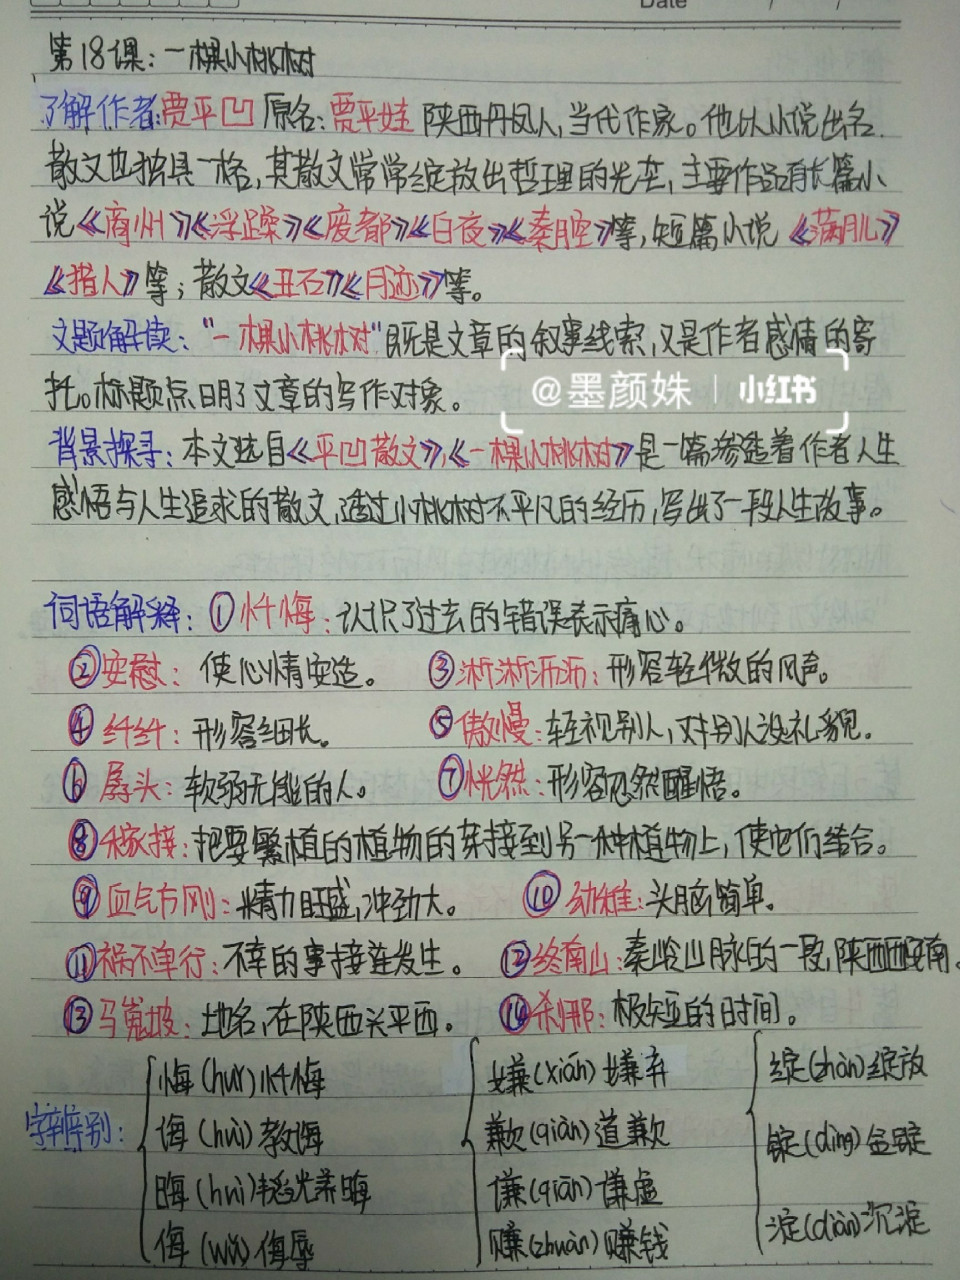 Date / /
第18课:一棵小桃树
了解作者:贾平凹 原名:贾平娃 陕西丹凤人,当代作家。他以小说出名.
散文也独具一格,其散文常常绽放出哲理的光芒,主要作品有长篇小
说《商州》《浮躁》《废都》《白夜》《秦腔》等,短篇小说《满月儿》
《猎人》等;散文《丑石》《月迹》等。
文题解读:"一棵小桃树"既是文章的叙事线索,又是作者感情的寄
托。标题点明了文章的写作对象。
@墨颜姝 | 小红书
背景探寻:本文选自《平凹散文》,《一棵小桃树》是一篇渗透着作者人生
感悟与人生追求的散文,透过小桃树不平凡的经历,写出了一段人生故事。
词语解释:①忏悔:认识了过去的错误表示痛心。
②安慰:使心情安适。 ③淅淅沥沥:形容轻微的风声。
④纤纤:形容细长。 ⑤傲慢:轻视别人,对别人没礼貌。
⑥孱头:软弱无能的人。 ⑦恍然:形容忽然醒悟。
⑧嫁接:把要繁植的植物的芽接到另一种植物上,使它们结合。
⑨血气方刚:精力旺盛,冲劲大。 ⑩幼稚:头脑简单。
⑪祸不单行:不幸的事接连发生。 ⑫终南山:秦岭山脉的一段,陕西西安南。
⑬马嵬坡:地名,在陕西兴平西。 ⑭刹那:极短的时间。
字辨别:
悔(huǐ)忏悔 嫌(xián)嫌弃 绽(zhàn)绽放
诲(huì)教诲 歉(qiàn)道歉 锭(dìng)金锭
晦(huì)韬光养晦 谦(qiān)谦虚 淀(diàn)沉淀
侮(wǔ)侮辱 赚(zhuàn)赚钱